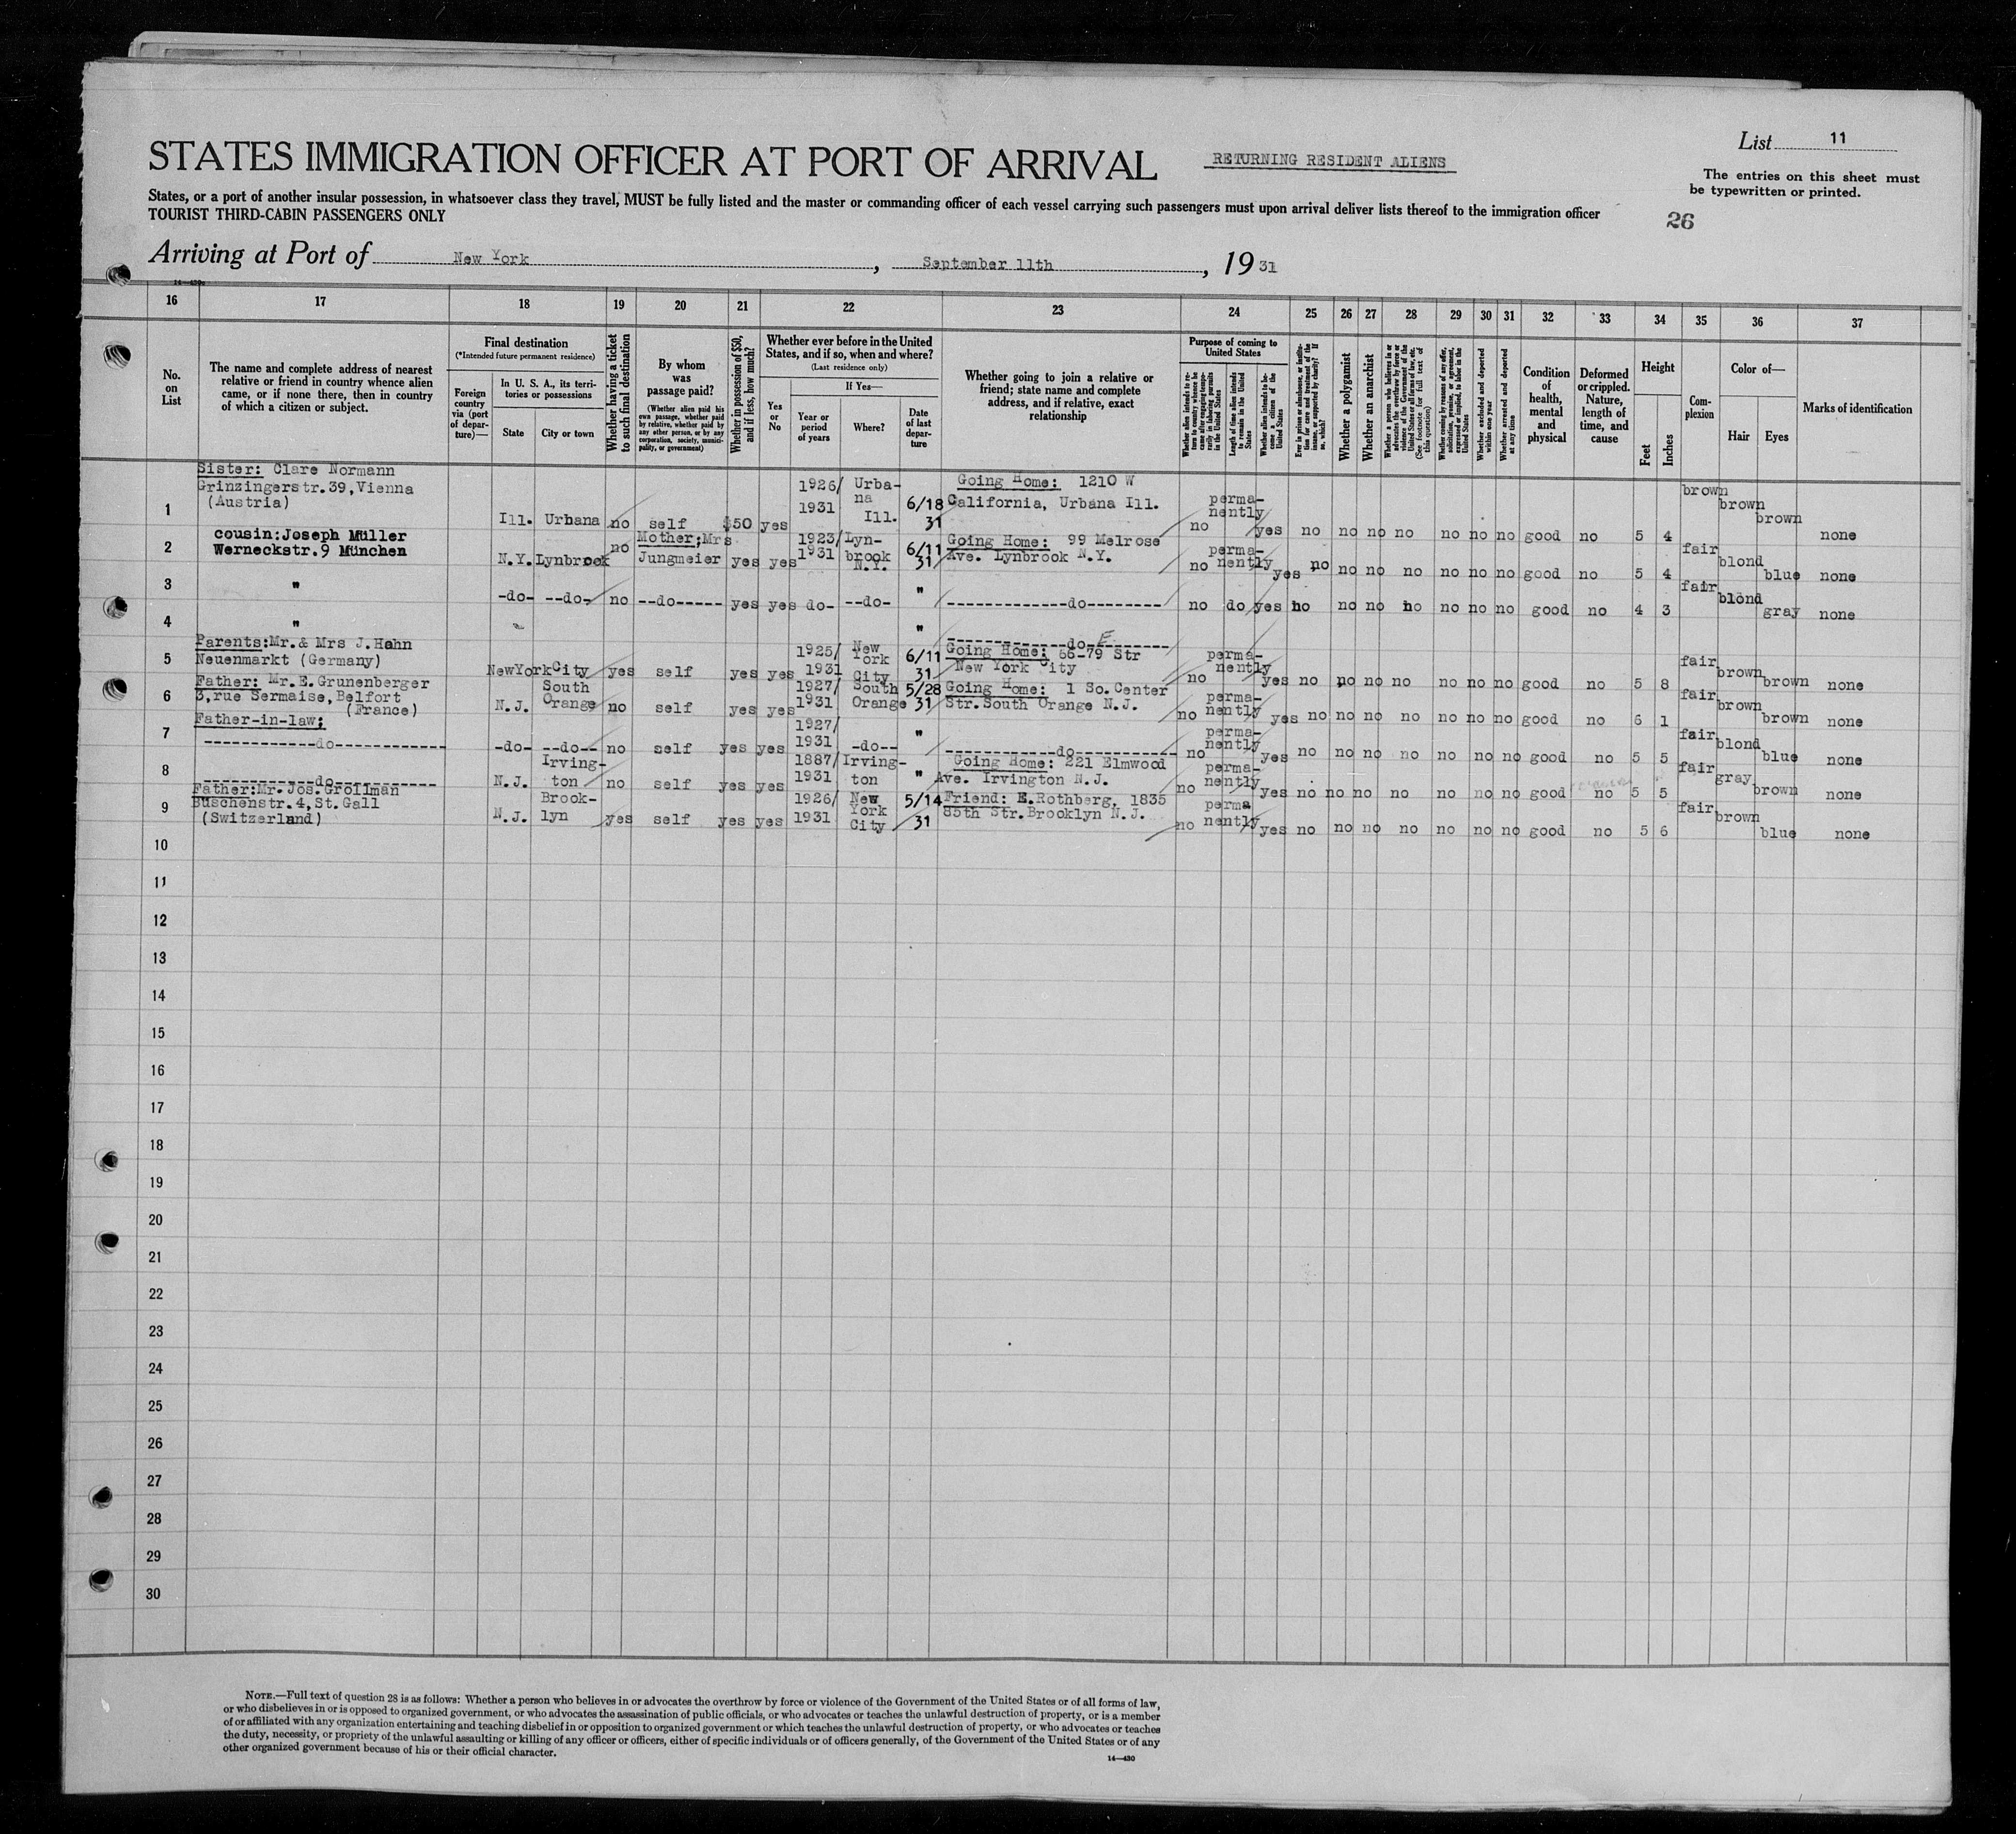 List 11
STATES IMMIGRATION OFFICER AT PORT OF ARRIVAL
RETURNING RESIDENT ALIENS
The entries on this sheet must
be typewritten or printed.
States, or a port of another insular possession, in whatsoever class they travel, MUST be fully listed and the master or commanding officer of each vessel carrying such passengers must upon arrival deliver lists thereof to the immigration officer
TOURIST THIRD-CABIN PASSENGERS ONLY
26
Arriving at Port of New York, September 11th, 1931
16 17 18 19 20 21 22 23 24 25 26 27 28 29 30 31 32 33 34 35 36 37
No. on List
The name and complete address of nearest
relative or friend in country whence alien
came, or if none there, then in country
of which a citizen or subject.
Final destination
(*Intended future permanent residence)
Foreign country via (port of departure)—
In U. S. A., its territories or possessions
State
City or town
Whether having a ticket to such final destination
By whom was passage paid?
(Whether alien paid his own passage, whether paid by relative, whether paid by any other person, or by any corporation, society, municipality, or government)
Whether in possession of $50, and if less, how much?
Whether ever before in the United States, and if so, when and where?
(Last residence only)
Yes or No
If Yes—
Year or period of years
Where?
Date of last departure
Whether going to join a relative or
friend; state name and complete
address, and if relative, exact
relationship
Purpose of coming to United States
Whether alien intends to return to country whence he came after engaging temporarily in laboring pursuits in the United States
Length of time alien intends to remain in the United States
Whether alien intends to become a citizen of the United States
Ever in prison or almshouse, or institution for care and treatment of the insane, or supported by charity? If so, which?
Whether a polygamist
Whether an anarchist
Whether a person who believes in or advocates the overthrow by force or violence of the Government of the United States or all forms of law, etc. (See footnote for full text of this question)
Whether coming by reason of any offer, solicitation, promise, or agreement, expressed or implied, to labor in the United States
Whether excluded and deported within one year
Whether arrested and deported at any time
Condition of health, mental and physical
Deformed or crippled. Nature, length of time, and cause
Height
Feet
Inches
Complexion
Color of—
Hair
Eyes
Marks of identification
1 Sister: Clare Normann
Grinzingerstr. 39, Vienna
(Austria)
Ill. Urbana no self $50 yes 1926/1931 Urbana Ill. 6/18 31 Going Home: 1210 W
California, Urbana Ill.
no permanently yes no no no no no no no good no 5 4 brown brown brown none
2 cousin: Joseph Müller
Werneckstr. 9 München
N.Y. Lynbrook no Mother; Mrs Jungmeier yes yes 1923/1931 Lynbrook N.Y. 6/11 31 Going Home: 99 Melrose
Ave. Lynbrook N.Y.
no permanently yes no no no no no no no good no 5 4 fair blond blue none
3 " -do- --do- no --do----- yes yes do- --do- " ------------do--------
no do yes no no no no no no no good no 4 3 fair blond gray none
4 " " ------------do--------
5 Parents: Mr. & Mrs J. Hahn
Neuenmarkt (Germany)
NewYork City yes self yes yes 1925/1931 New York City 6/11 31 Going Home: E 79 Str
New York City
no permanently yes no no no no no no no good no 5 8 fair brown brown none
6 Father: Mr. E. Grunenberger
3, rue Sermaise, Belfort
(France)
N.J. South Orange no self yes yes 1927/1931 South Orange 5/28 31 Going Home: 1 So. Center
Str. South Orange N.J.
no permanently yes no no no no no no no good no 6 1 fair brown brown none
7 Father-in-law;
------------do------------
-do- --do-- no self yes yes 1927/1931 -do-- " ------------do------------
no permanently yes no no no no no no no good no 5 5 fair blond blue none
8 ------------do------------
N.J. Irvington no self yes yes 1887/1931 Irvington " Going Home: 221 Elmwood
Ave. Irvington N.J.
no permanently yes no no no no no no no good no 5 5 fair gray brown none
9 Father: Mr. Jos. Grollman
Buschenstr. 4, St. Gall
(Switzerland)
N.J. Brooklyn yes self yes yes 1926/1931 New York City 5/14 31 Friend: E. Rothberg, 1835
85th Str. Brooklyn N.J.
no permanently yes no no no no no no no good no 5 6 fair brown blue none
10
11
12
13
14
15
16
17
18
19
20
21
22
23
24
25
26
27
28
29
30
NOTE.—Full text of question 28 is as follows: Whether a person who believes in or advocates the overthrow by force or violence of the Government of the United States or of all forms of law,
or who disbelieves in or is opposed to organized government, or who advocates the assassination of public officials, or who advocates or teaches the unlawful destruction of property, or is a member
of or affiliated with any organization entertaining and teaching disbelief in or opposition to organized government or which teaches the unlawful destruction of property, or who advocates or teaches
the duty, necessity, or propriety of the unlawful assaulting or killing of any officer or officers, either of specific individuals or of officers generally, of the Government of the United States or of any
other organized government because of his or their official character.
14—430